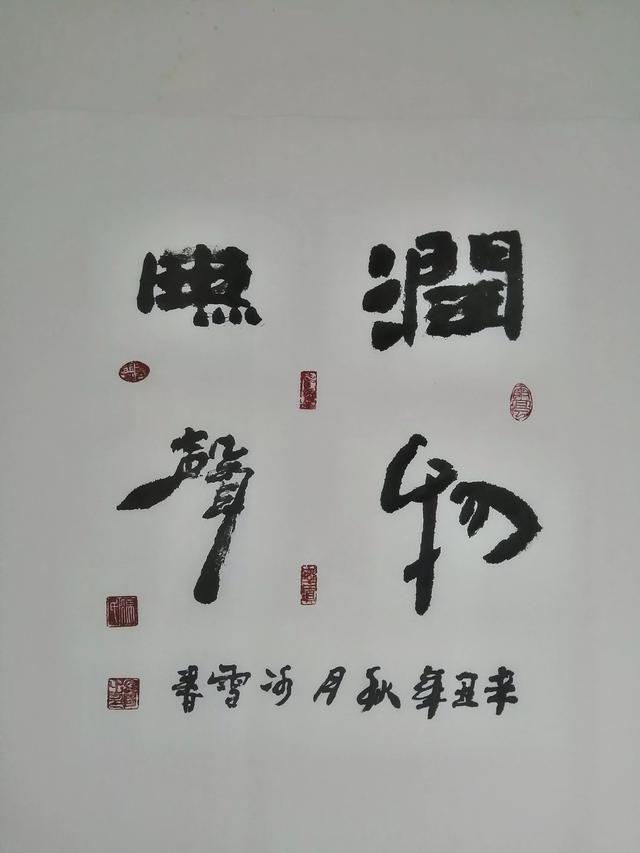 潤物
無聲
辛丑年秋月冰雪書